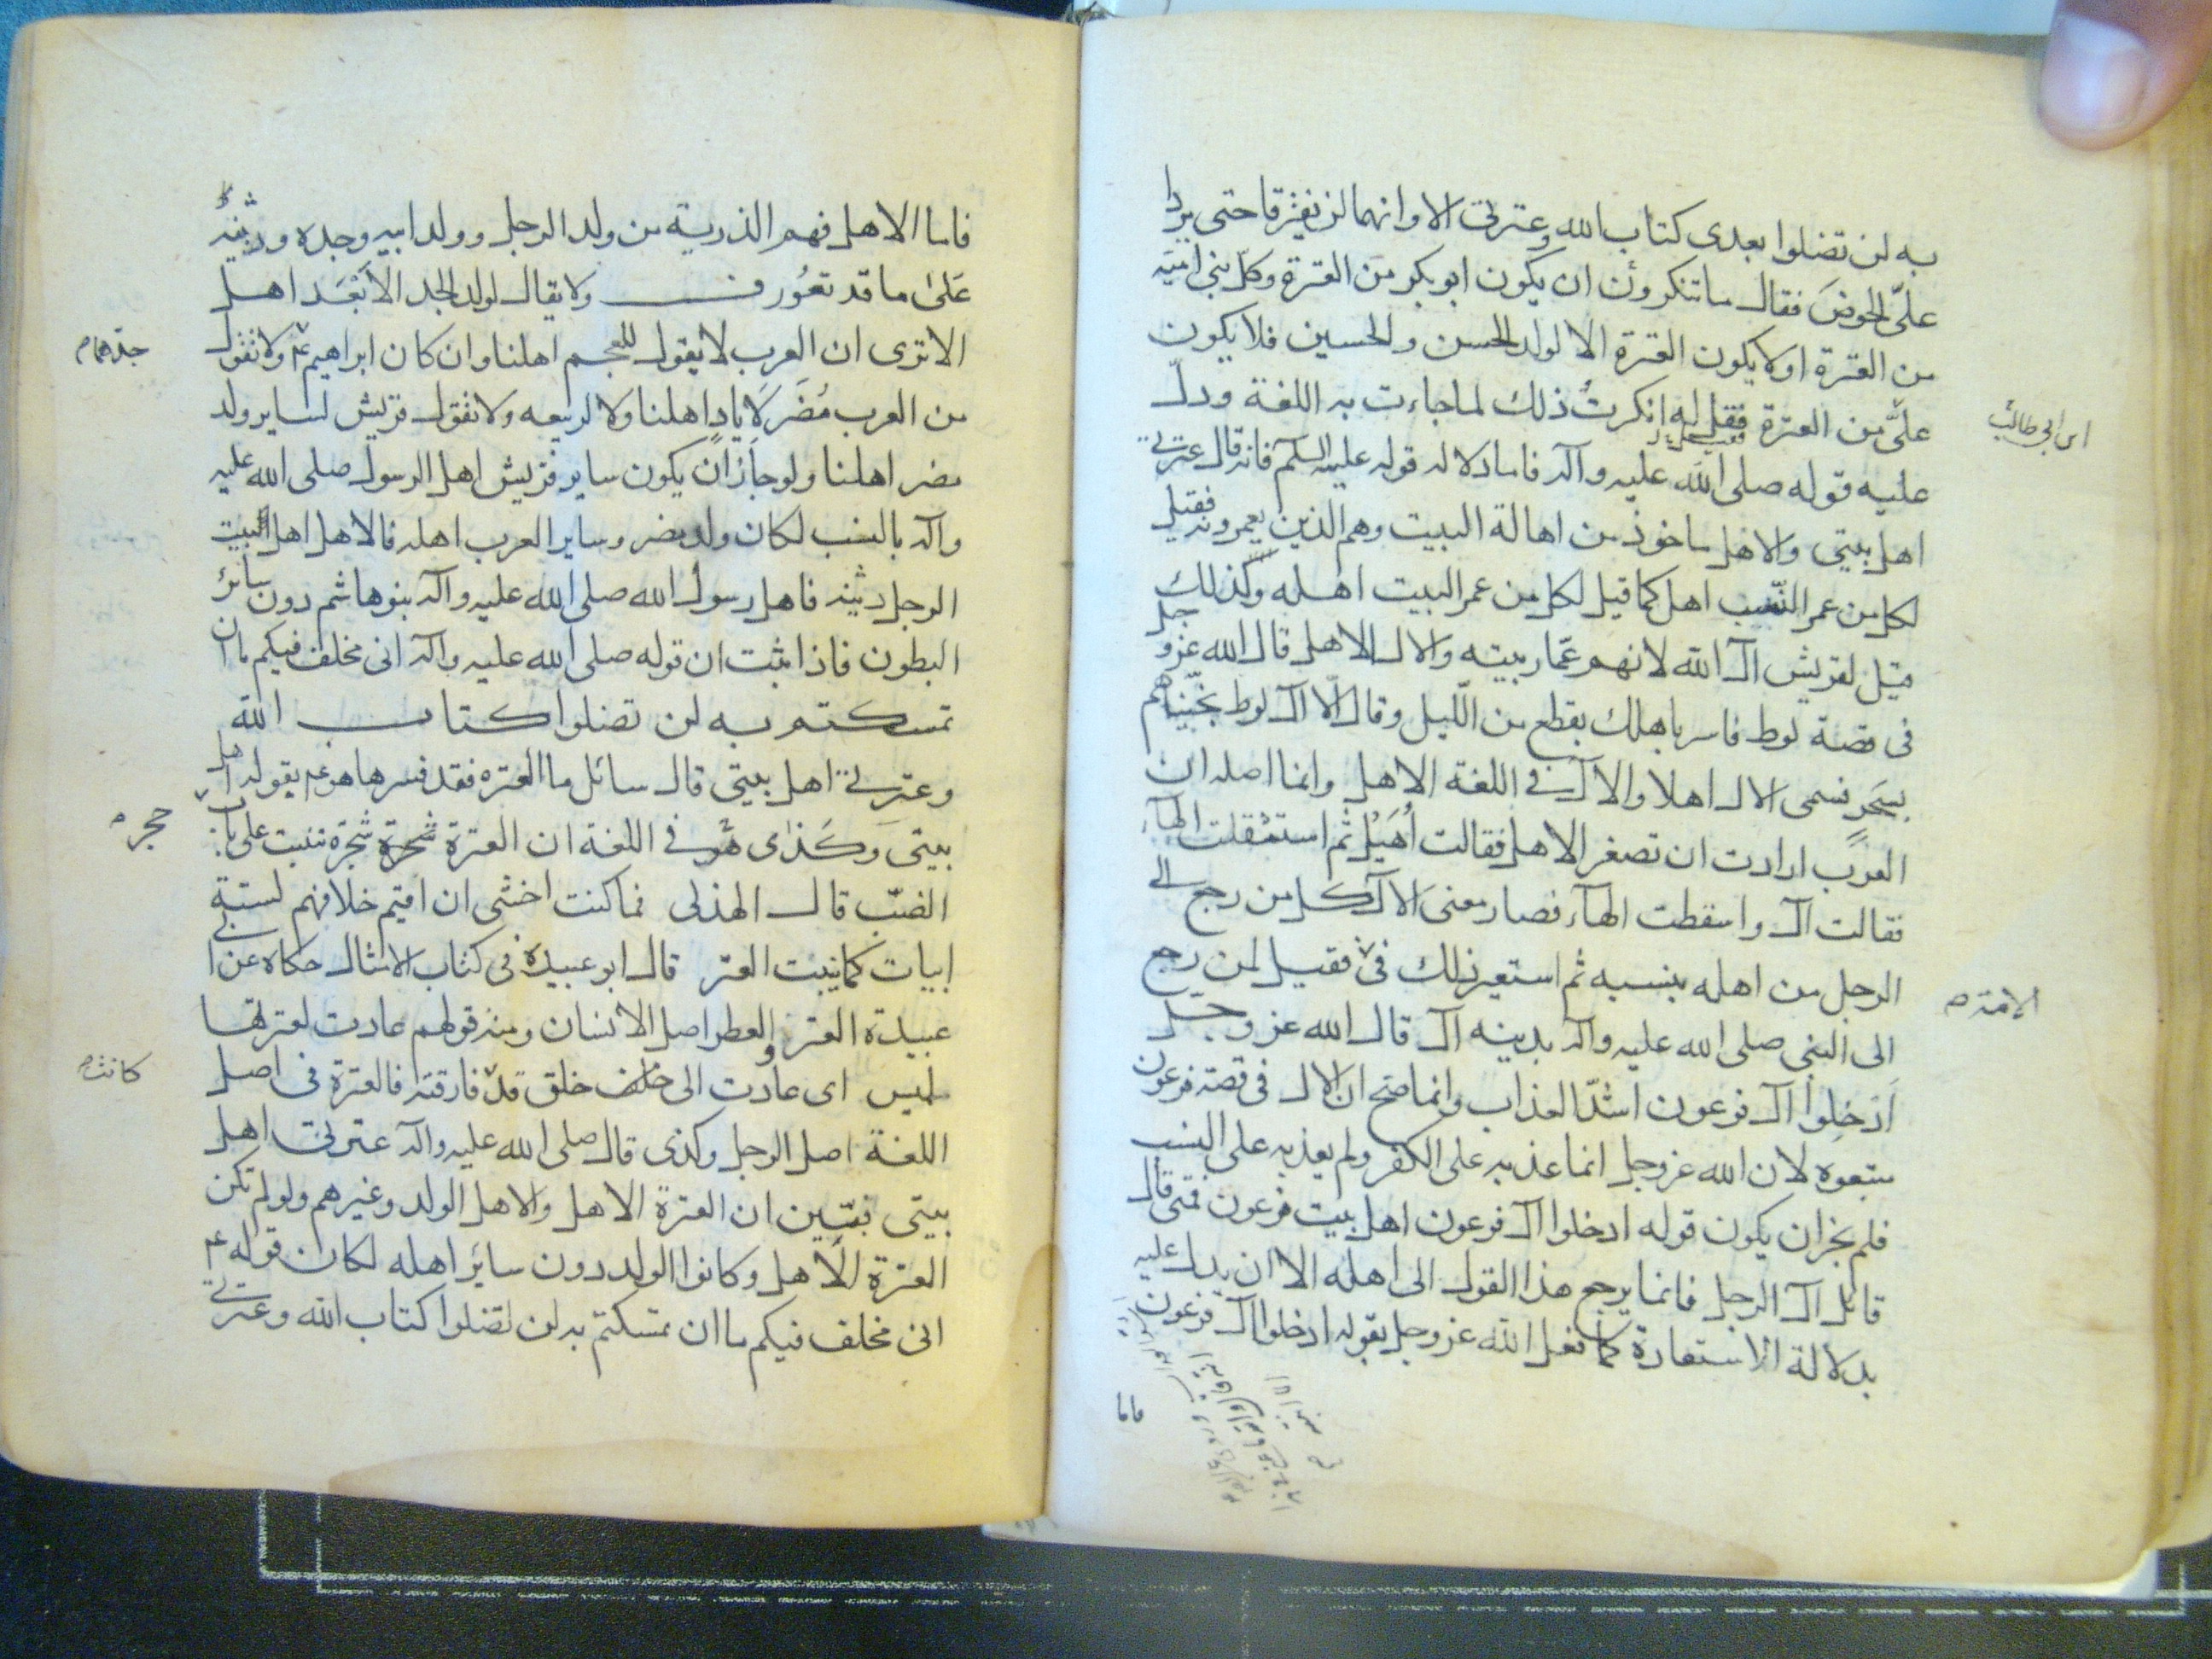 به لن تضلوا بعدى كتاب الله وعترتى الا وانهما لن يفترقا حتى يردا
علىّ الحوض فقال ما تنكرون ان يكون ابو بكر من العترة وكلّ بنى امية
من العترة او لا يكون العترة الا لولد الحسن والحسين فلا يكون
علىّ من العترة فقيل له انكرتُ ذلك لما جاءت به اللغة ودلّ
ابن ابى طالب
عليه قوله صلى الله عليه وآله فاما دلالة قوله عليه السلم فانه قال عترتى
اهل بيتى والاهل ماخوذ من اهالة البيت وهم الذين يعمرونه فقيل
لكل من عمر النسب اهل كما قيل لكل من عمر البيت اهله وكذلك
قيل لقريش آل الله لانهم عمّار بيته والال الاهل قال الله عز و جل
فى قصة لوط فاسر باهلك بقطع من الليل وقال الّا آل لوط نجّيناهم
بسحرٍ فسمى الال اهلا والآل فى اللغة الاهل وانما اصله ان
العرب ارادت ان تصغر الاهل فقالت اُهَيل ثم استثقلت الهآء
فقالت آل واسقطت الهآء فصار معنى الآل كل من رجع الى
الرجل من اهله بنسبه ثم استعير ذلك فى فقيل لمن رجع
الامة
الى النبى صلى الله عليه وآله بدينه آل قال الله عز وجلّ
اَدخِلوا آل فرعون اشدّ العذاب وانما صح ان الال فى قصة فرعون
متبعوه لان الله عز وجل انما عذبه على الكفر ولم يعذبه على النسب
فلم يجز ان يكون قوله ادخلوا آل فرعون اهل بيت فرعون فمتى قال
قائل آل الرجل فانما يرجع هذا القول الى اهله الا ان يدل عليه
بدلالة الاستعارة كما فعل الله عز وجل بقوله ادخلوا آل فرعون
فاما
فاما الاهل فهم الذرية من ولد الرجل وولد ابيه وجده ودنيه
عَلىٰ ما قد تعُورف ولا يقال لولد الجد الاَبْعَد اهل
الا ترى ان العرب لا يقول للعجم اهلنا وان كان ابراهيم ع ولا تقول
جدهما
من العرب مُضَر لاَيادٍ اهلنا ولا لربيعه ولا تقول قريش لساير ولد
مضر اهلنا ولو جاز ان يكون ساير قريش اهل الرسول صلى الله عليه
وآله بالنسب لكان ولد مضر وساير العرب اهله فالاهل اهل البيت
الرجل دنيه فاهل رسول الله صلى الله عليه وآله بنو هاشم دون سائر
البطون فاذا ثبت ان قوله صلى الله عليه وآله انى مخلف فيكم ما ان
تمسكتم به لن تضلوا كتاب الله
وعترتى اهل بيتى قال سائل ما العتره فقد فسرها هو ع بقوله اهل
بيتى وكذى هو فى اللغة ان العترة شجرة شجرة تنبت على باب
حجر
الضبّ قال الهذلى فما كنت اخشى ان اقيم خلافهم لستة
ابيات كما ينبت العتر قال ابو عبيدة فى كتاب الامثال حكاه عن ابى
عبيدة العتر والعطر اصل الانسان ومنه قولهم عادت لعترتها
لميس اى عادت الى خلف خلق قد فارقته فالعترة فى اصل
كانت
اللغة اصل الرجل وكذى قال صلى الله عليه وآله عترتى اهل
بيتى فتبين ان العترة الاهل والاهل الولد وغيرهم ولو لم تكن
العترة الاهل وكانوا الولد دون سائر اهله لكان قوله ع
انى مخلف فيكم ما ان تمسكتم به لن تضلوا كتاب الله وعترتى